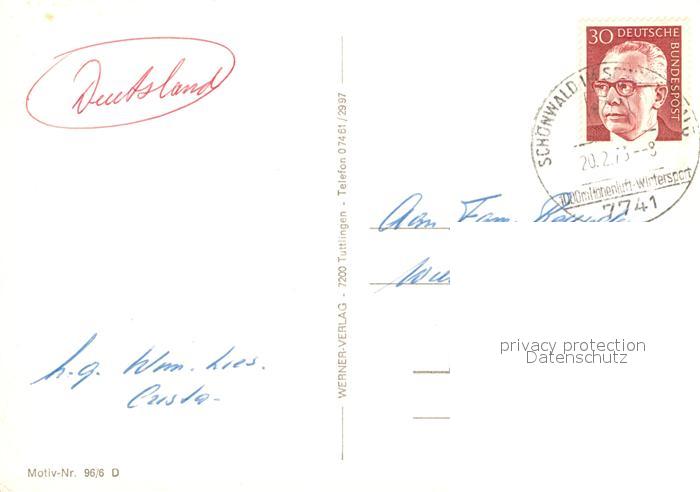 Deutsland
30 DEUTSCHE BUNDESPOST
SCHÖNWALD
20.2.73--8
1000m Höhenluft-Wintersport
7741
WERNER-VERLAG - 7200 Tuttlingen - Telefon 07461/2997
Aan Fam.
h.g. Wim. Lies.
Crista-
privacy protection
Datenschutz
Motiv-Nr. 96/6 D